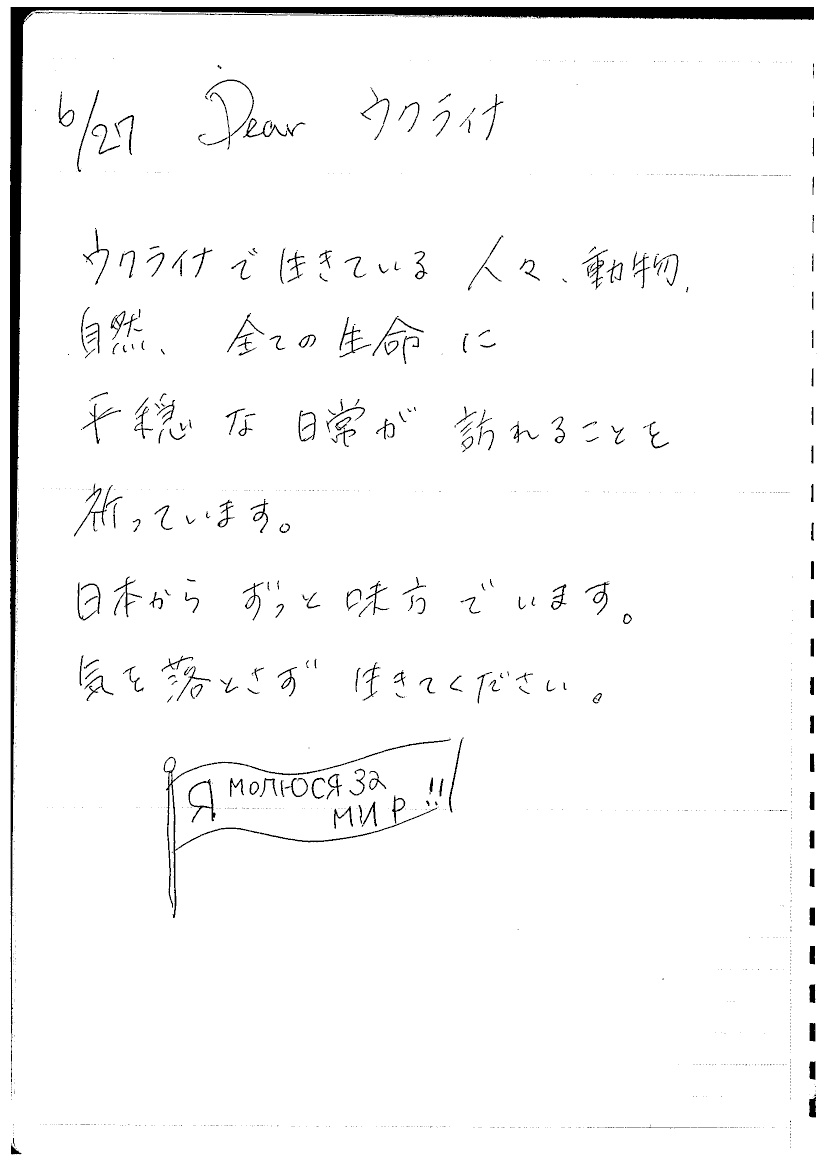 6/27 Dear ウクライナ
ウクライナで生きている 人々、動物、
自然、全ての生命に
平穏な日常が訪れることを
祈っています。
日本からずっと味方でいます。
気を落とさず 生きてください。
Я молюся за
мир!!